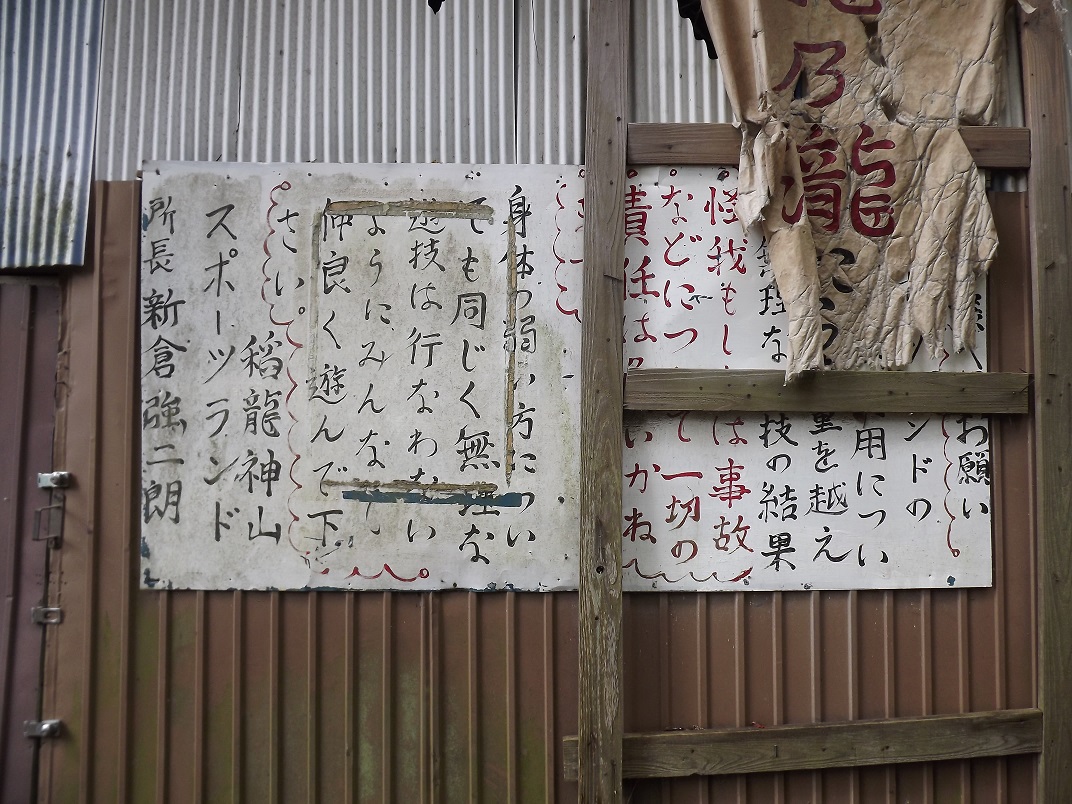 乃瀧
お願い
ンドの
用につい
を越え
理な 技の結果
怪我もし は事故
などにつ て一切の
責任は いかね
身体の弱い方につい
ても同じく無理な
遊技は行なわない
ようにみんなで
仲良く遊んで下
さい。
稲龍神山
スポーツランド
所長 新倉強二朗